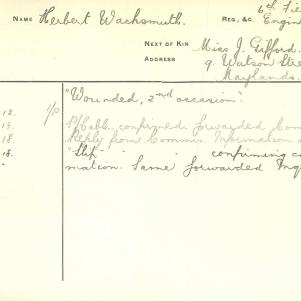 NAME Herbert Wachsmuth. REG., &C. 6th Fie
Engin
NEXT OF KIN Miss J. Gifford.
ADDRESS 9. Watson Stre
Maylands.
"Wounded, 2nd occasion."
12. I/P
15. P/Cable. confirmed. forwarded Com
18. Reply from Commun. Information
18. "Slip" " " confirming ca
" mation. Same forwarded Inq